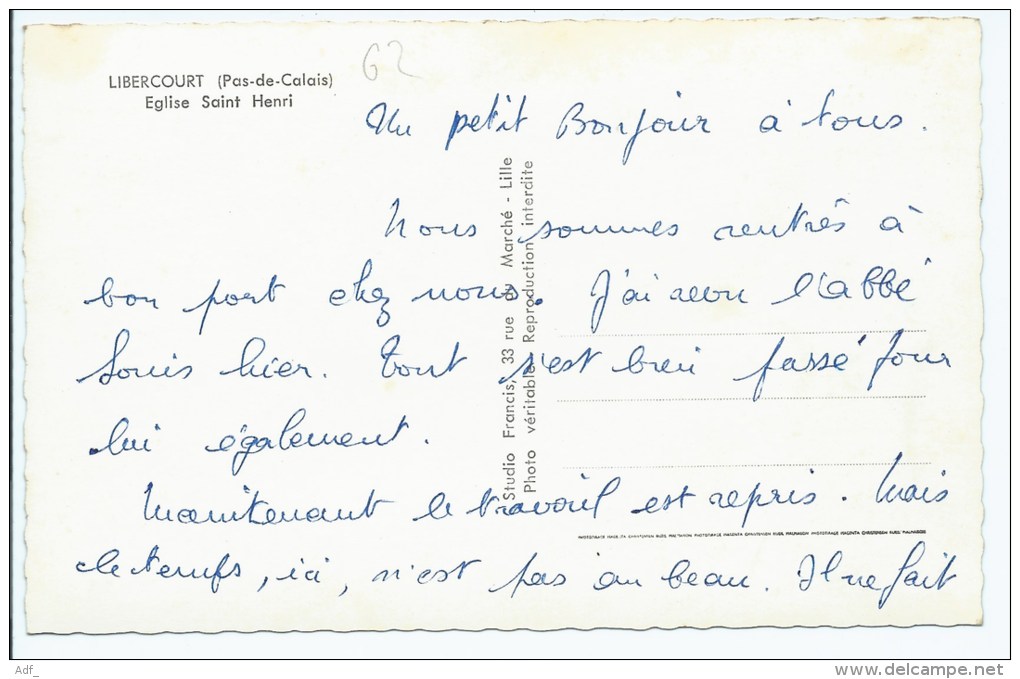 62
LIBERCOURT (Pas-de-Calais)
Eglise Saint Henri
Un petit Bonjour à tous.
Nous sommes rentrés à
bon port chez nous. J'ai revu l'abbé
Louis hier. Tout s'est bien passé pour
lui également.
Maintenant le travail est repris. Mais
le temps, ici, n'est pas au beau. Il ne fait
Studio Francis, 33 rue du Marché - Lille
Photo véritable Reproduction interdite
Adf_
www.delcampe.net